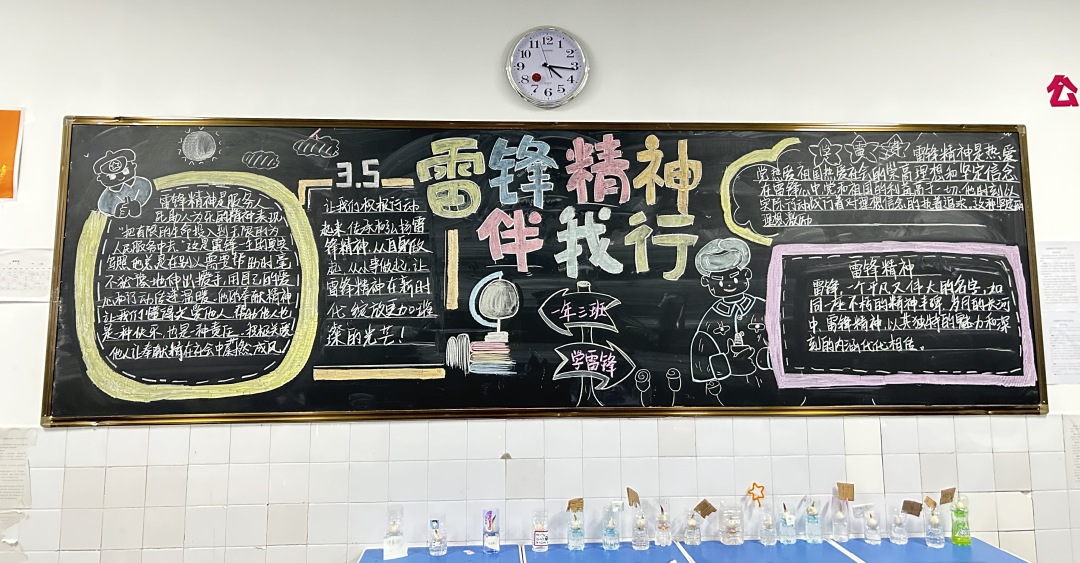 3.5
雷锋精神
伴我行
雷锋精神是服务人
民助人为乐的精神表现
"把有限的生命投入到无限的为
人民服务中去"这是雷锋一生的真实
写照他总是在别人需要帮助时毫
不犹豫地伸出援手,用自己的
心和行动传递温暖。他的奉献精神
让我们懂得关爱他人,帮助他人也
是一种快乐,也是一种责任。积极关爱
他人让奉献精在社会中蔚然成风!
让我们积极行动
起来传承和弘扬雷
锋精神,从自身做
起,从小事做起,让
雷锋精神在新时
代绽放更加璀
璨的光芒!
一年三班
学雷锋
雷锋精神是热爱
党热爱祖国热爱社会的崇高理想和坚定信念
在雷锋心中党和祖国的利益高于一切,他时刻以
实际行动践行着对理想信念的执着追求,这种
雷锋精神
雷锋,一个平凡又伟大的名字,如
同一座不朽的精神丰碑,岁月的长河
中,雷锋精神,以其独特的魅力和深
刻的内涵代代相传。
公
12
1
2
3
4
5
6
7
8
9
10
11